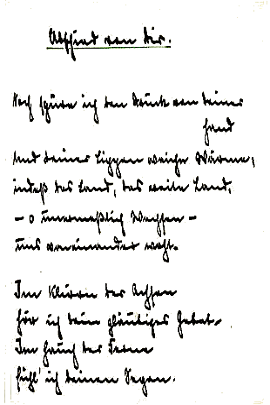 Abschied von dir.
Noch spüre ich den Druck von deiner
Hand
Und deiner Lippen weiche Wärme,
indeß das Land, das weite Land,
– o unermeßlich Wachsen –
uns voneinander
Im Klirren der Achsen
hör ich dein gläubiges Gebet.
Im Hauch der Ferne
fühl' ich deinen Segen.